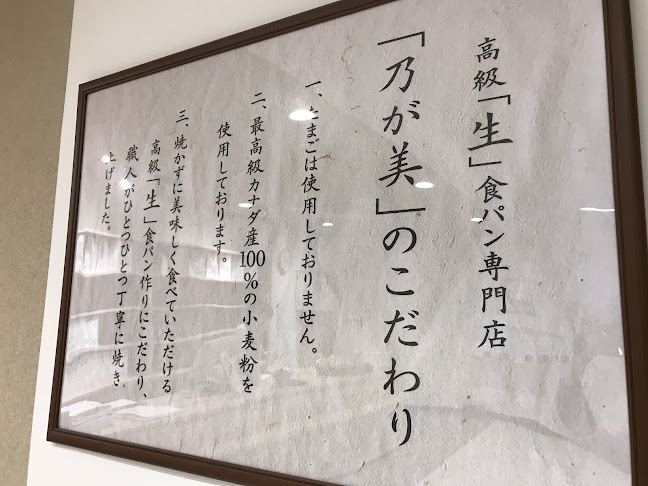 高級「生」食パン専門店
「乃が美」のこだわり
一、たまごは使用しておりません。
二、最高級カナダ産100%の小麦粉を
使用しております。
三、焼かずに美味しく食べていただける
高級「生」食パン作りにこだわり、
職人がひとつひとつ丁寧に焼き
上げました。